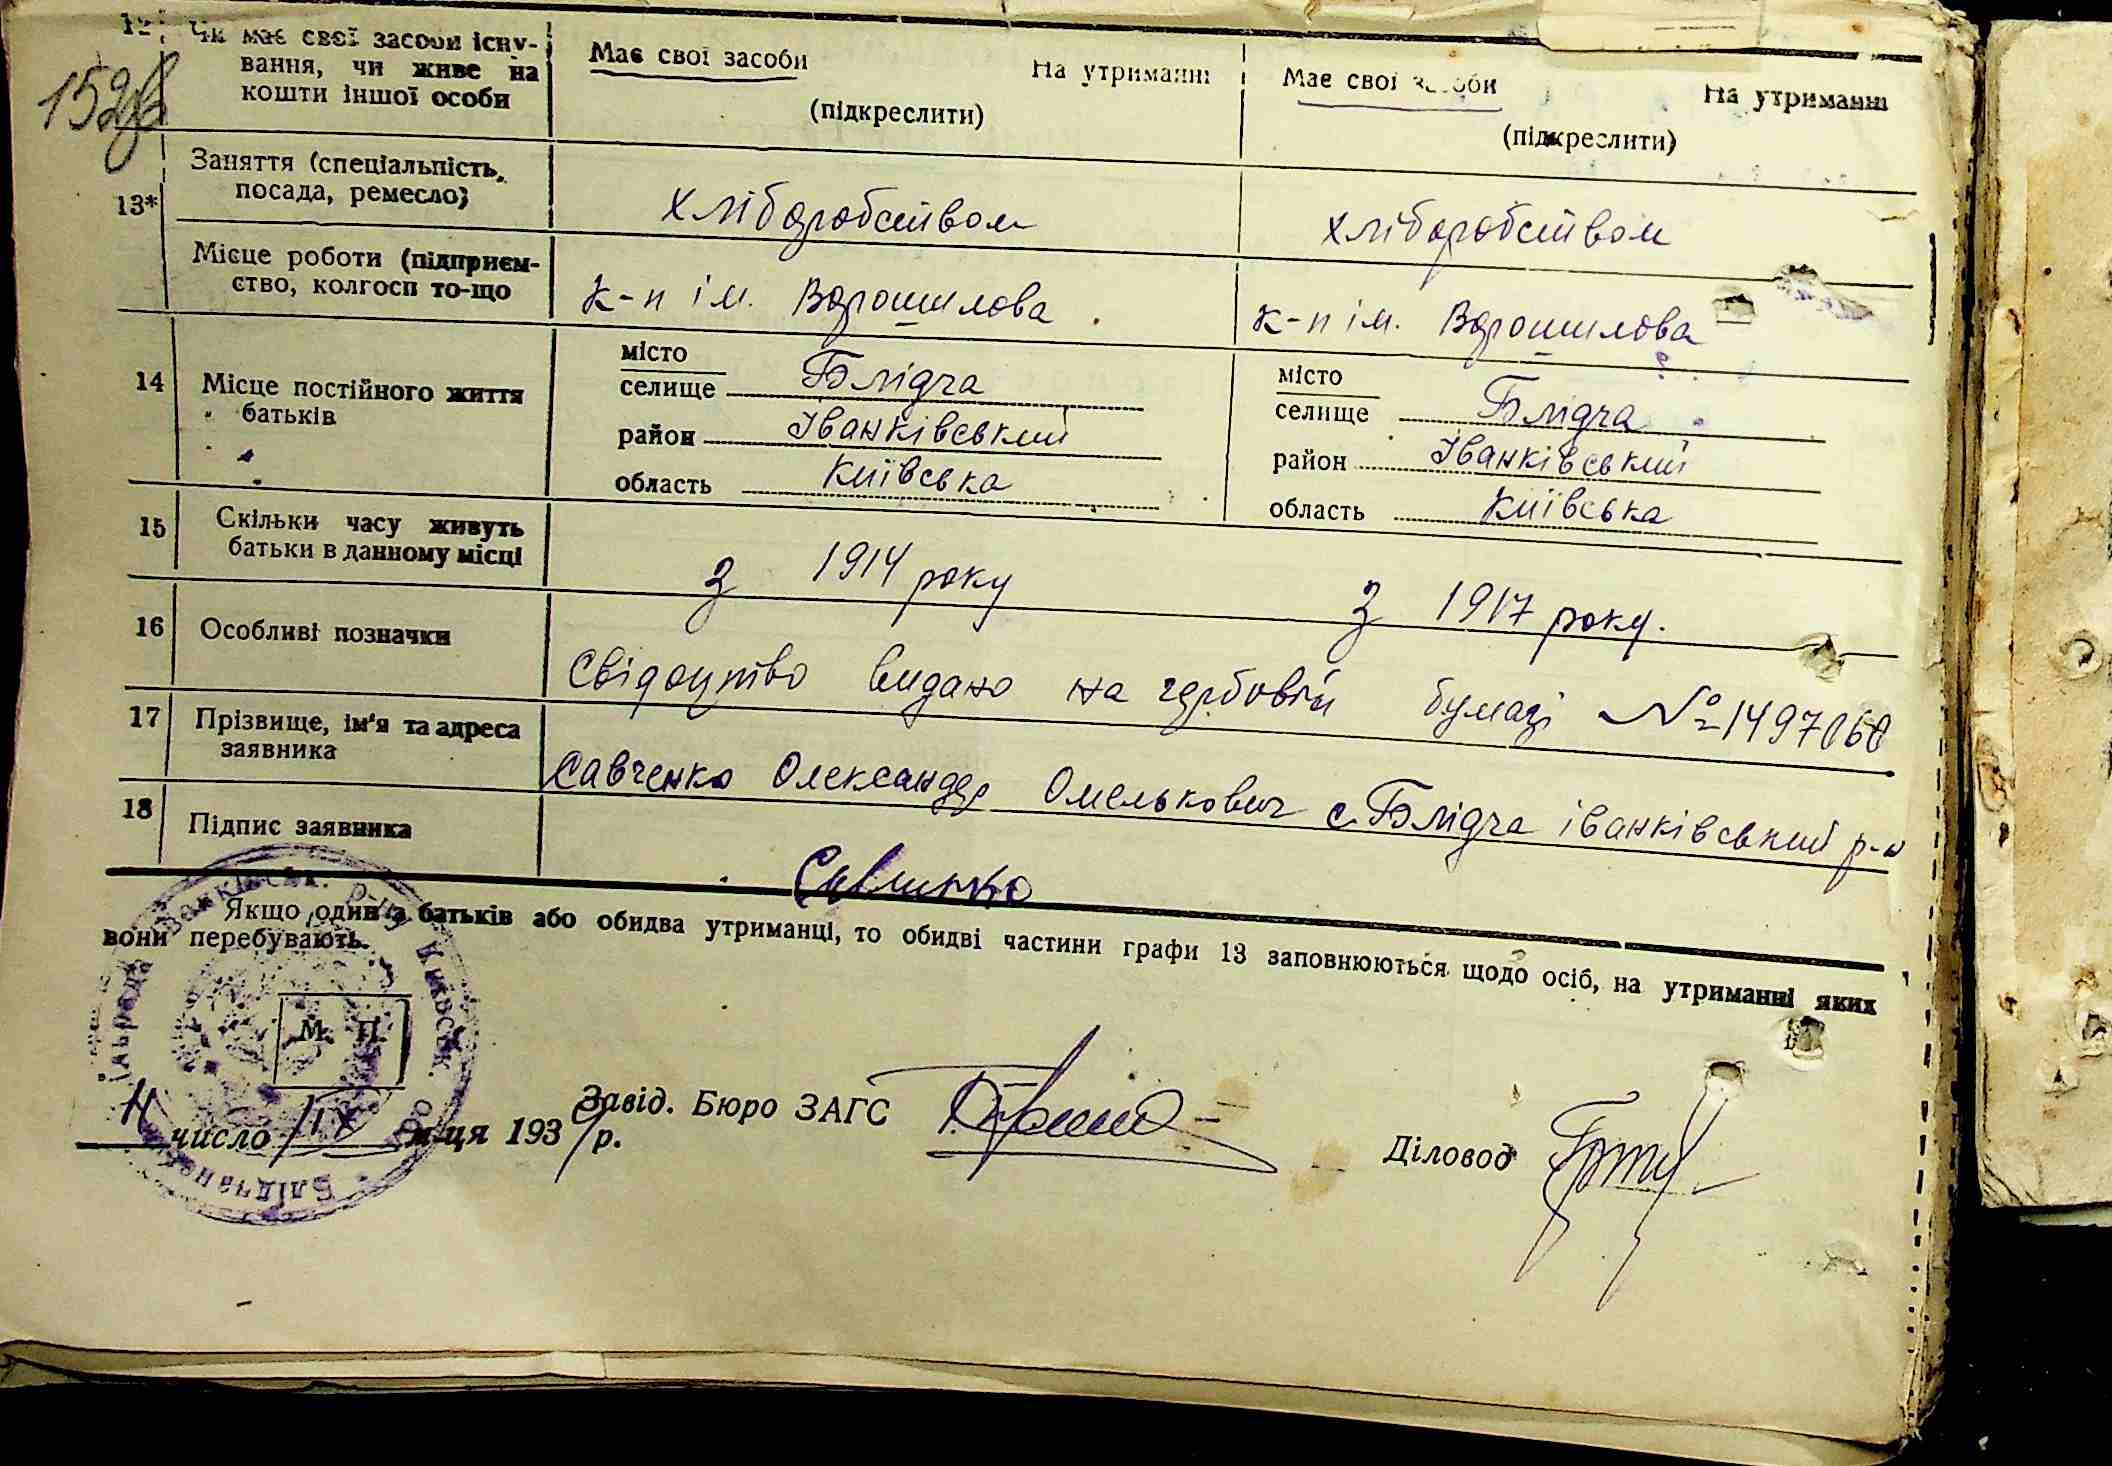 12 Чи має свої засоби існу- Має свої засоби На утриманні Має свої засоби На утриманні
вання, чи живе на
кошти іншої особи (підкреслити) (підкреслити)
152
13* Заняття (спеціальність, посада, ремесло) хліборобством хліборобством
Місце роботи (підприєм-
ство, колгосп то-що к-п ім. Ворошилова к-п ім. Ворошилова
14 Місце постійного життя
батьків
місто
селище Блідча
район Іванківський
область Київська
місто
селище Блідча
район Іванківський
область Київська
15 Скільки часу живуть
батьки в данному місці з 1914 року з 1917 року.
16 Особливі позначки Свідоцтво видано на гербовій бумазі № 1497060
17 Прізвище, ім'я та адреса
заявника Савченко Олександр Омелькович с. Блідча іванківський р-н
18 Підпис заявника Савченко
Якщо один з батьків або обидва утриманці, то обидві частини графи 13 заповнюються щодо осіб, на утриманні яких
вони перебувають.
М. П.
Завід. Бюро ЗАГС
Діловод
число IX м-ця 1939 р.